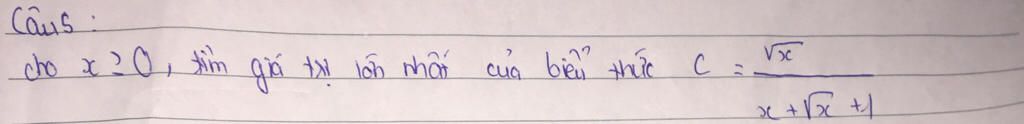 Câu 5 :
cho x ≥ 0, tìm giá trị lớn nhất của biểu thức C = √x / (x + √x + 1)